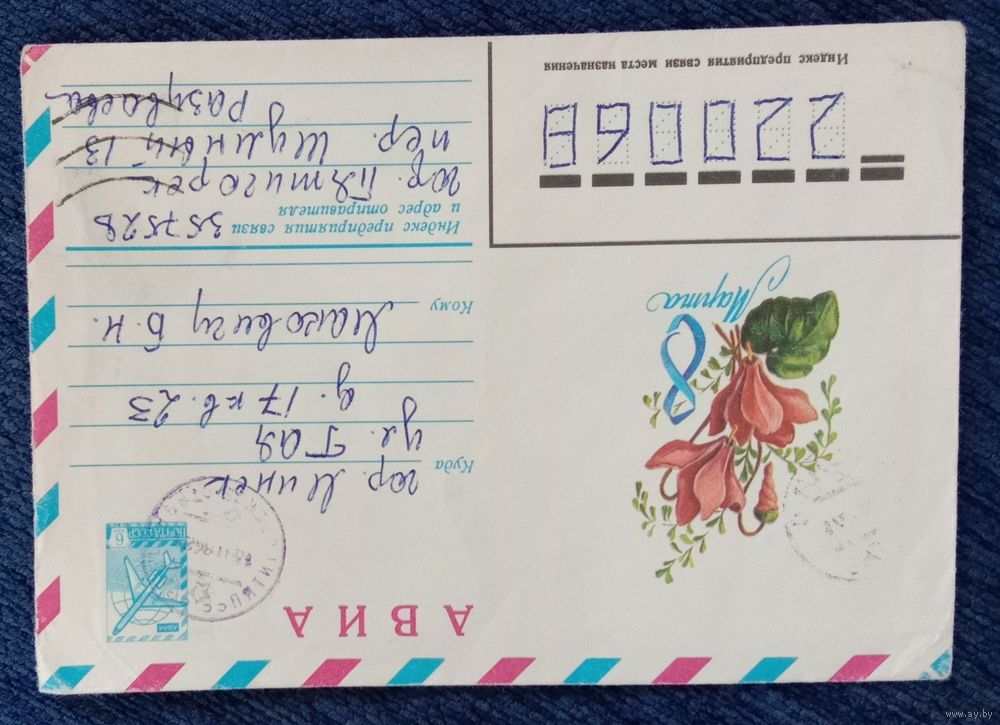 АВИА
АВИА
ПОЧТА СССР
6
Куда гор. Минск
ул. Гая
д. 17 кв. 23
Кому Маковичу Б. Н.
Индекс предприятия связи 357528
и адрес отправителя
гор. Пятигорск
пер. 13
Разуваева
8 Марта
220068
Индекс предприятия связи места назначения
www.ay.by